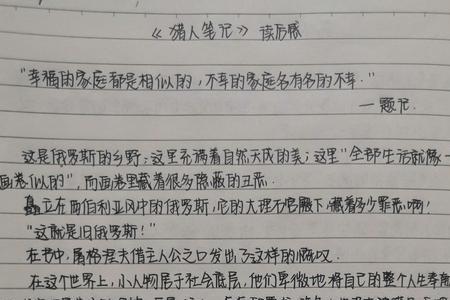 《猎人笔记》读后感
“幸福的家庭都是相似的，不幸的家庭各有各的不幸.”
—题记.
这是俄罗斯的乡野；这里充满着自然天成的美；这里“全部生活就像一
画卷似的”，而画卷里藏着很多隐蔽的丑恶.
矗立在西伯利亚风中的俄罗斯，它的大理石宫殿下，藏着多少罪恶啊！
“这就是旧俄罗斯！”
在书中，屠格涅夫借主人公之口发出了这样的慨叹.
在这个世界上，小人物居于社会底层，他们卑微地将自己的整个人生奉献